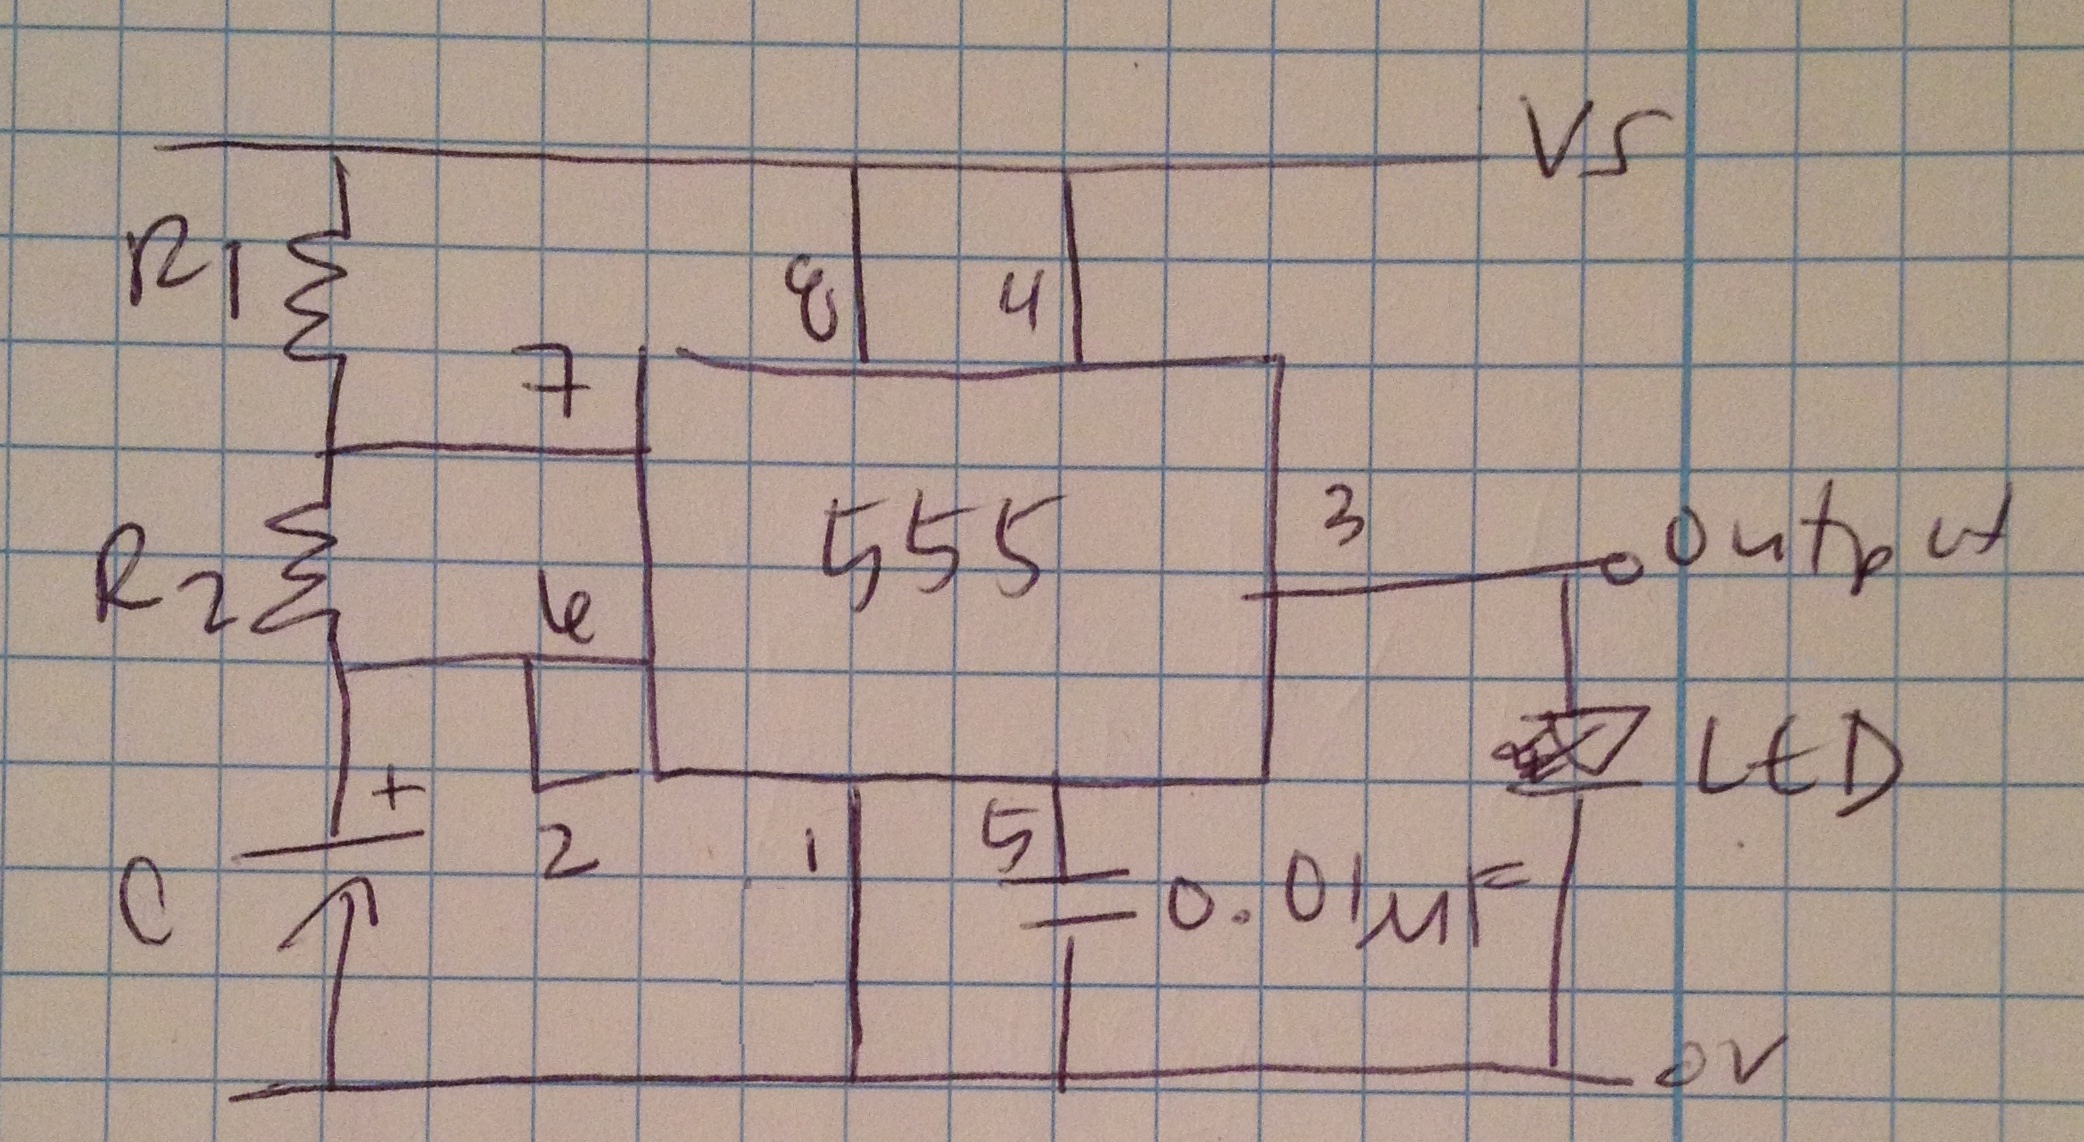 VS
R1
8
4
7
555
3
Output
R2
6
LED
+
2
1
5
C
0.01µF
0V